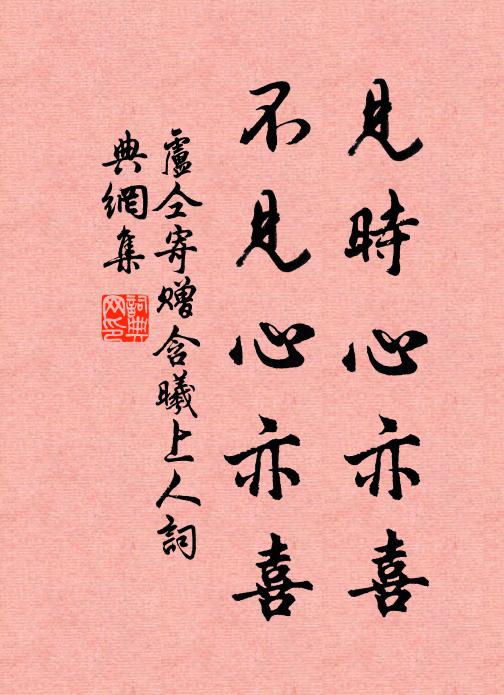 見時心亦喜
不見心亦喜
盧仝寄贈含曦上人詞
典網集
詞典
网印